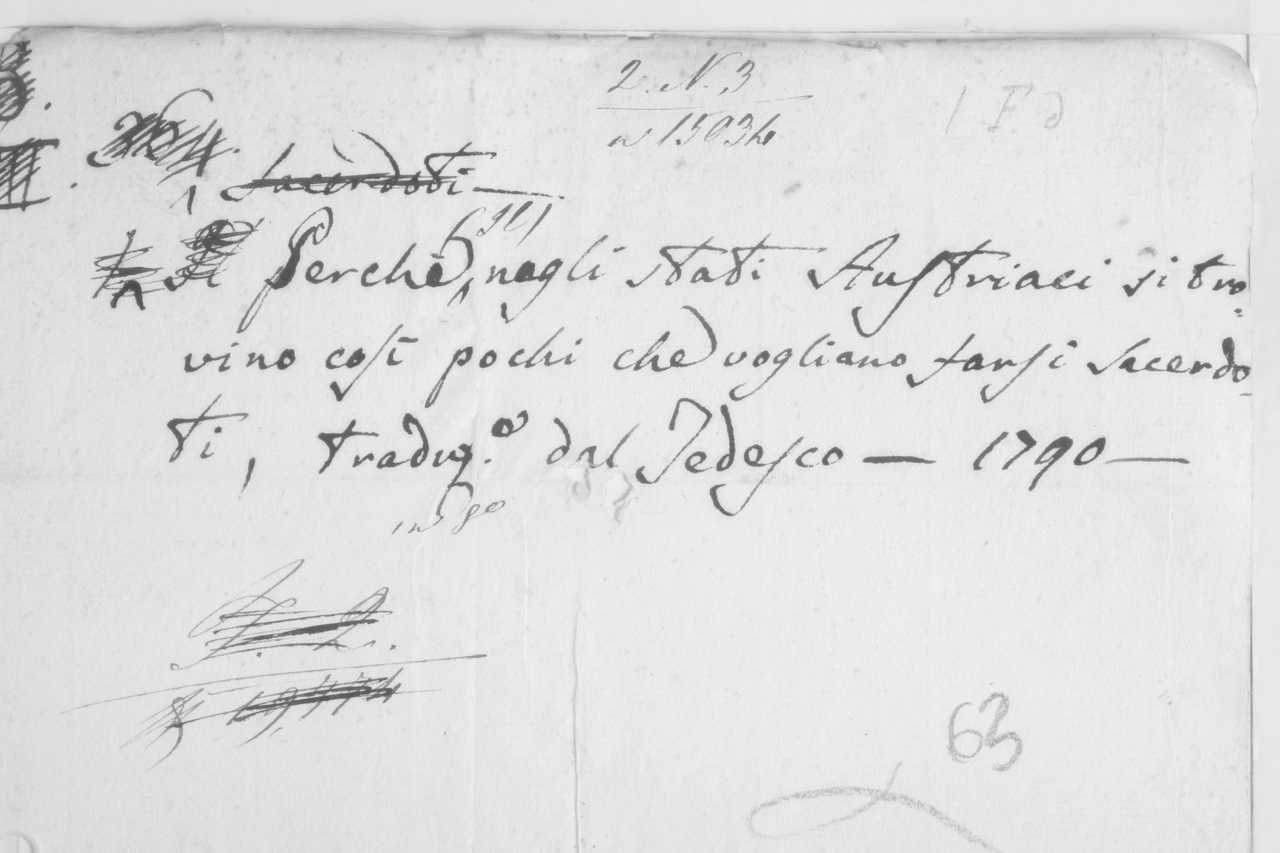 2. N. 3
n 15934
1 Sacerdoti —
Perchè negli stati Austriaci si tro-
vino così pochi che vogliano farsi Sacerdo-
ti, traduz.e dal Tedesco — 1790 —
in 8o
63